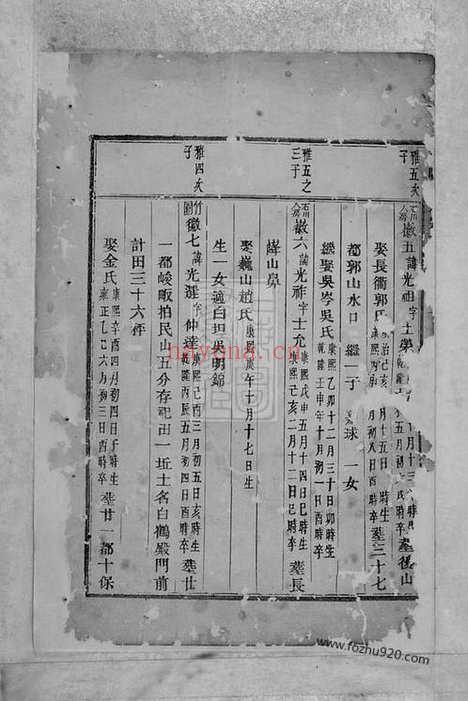 雅五次
子
石川公房徽五諱光祖字士學
娶長衢郭氏
都郭山水口 繼一子 球 一女
繼娶吳岑吳氏康熙乙卯十二月三十日卯時生乾隆壬申年十月初一日酉時卒
雅五之
三子
徽六諱光祚字士允康熙戊申五月十四日巳時生康熙己亥二月十二日巳時卒 墓長
山鼻
娶巍山趙氏康熙庚午十月十七日生
生一女適白坦吳明錦
雅四次
子
徽七諱光選字仲達康熙己酉三月初五日亥時生乾隆丙辰五月初四日酉時卒 墓廿
一都峻畈拍民山五分存祀田一坵土名白鶴嚴門前
計田三十六秤
娶金氏康熙辛酉四月初四日子時生雍正乙巳六月初三日酉時卒 墓廿一都十保
hayona.cn
www.fozhu920.com